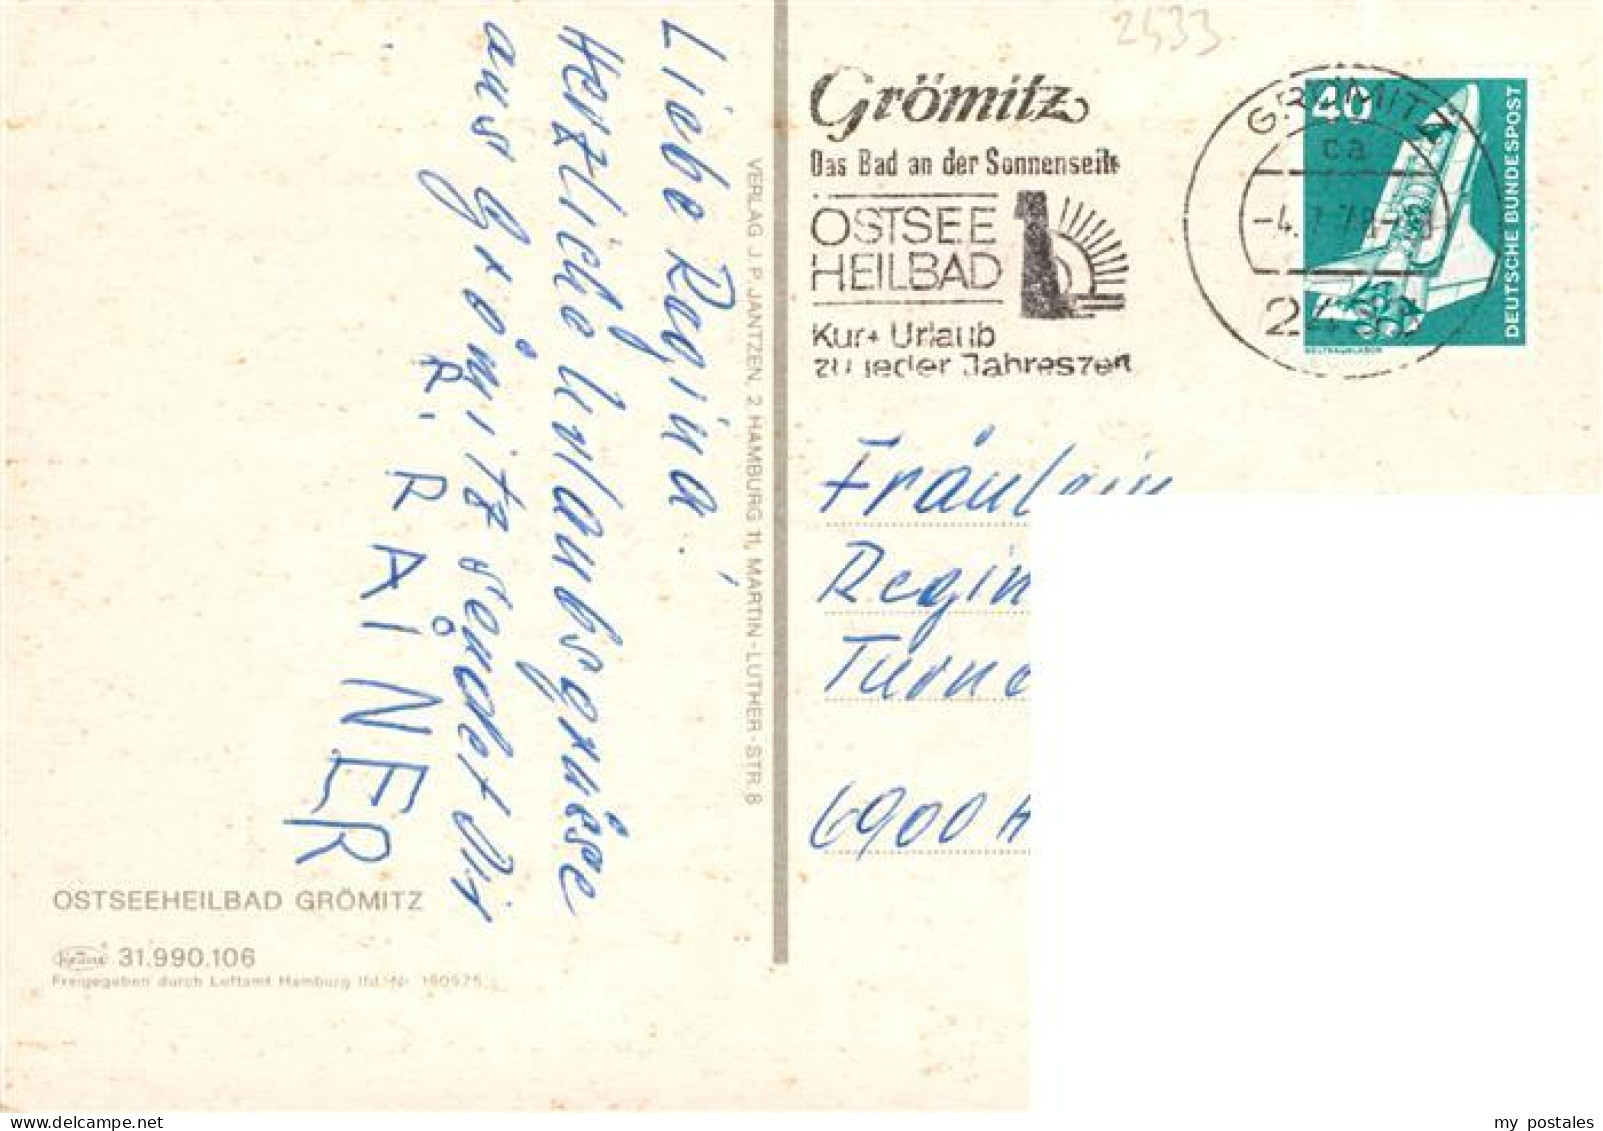 2533
Liebe Regina!
Herzliche Urlaubsgrüsse
aus Grömitz sendet Dir
R. RAINER
VERLAG J. P. JANTZEN, 2 HAMBURG 11, MARTIN-LUTHER-STR. 8
OSTSEEHEILBAD GRÖMITZ
31.990.106
Freigegeben durch Luftamt Hamburg lfd.-Nr.
Grömitz
Das Bad an der Sonnenseite
OSTSEE
HEILBAD
Kur + Urlaub
zu jeder Jahreszeit
GRÖMITZ
ca
40
DEUTSCHE BUNDESPOST
WELTRAUMLABOR
Fräulein
Regin
Turne
6900 H
my postales